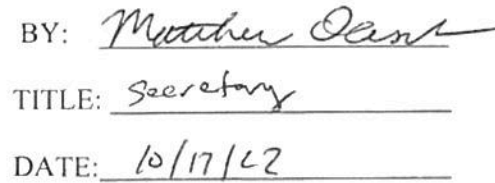 BY: Matthew
TITLE: Secretary
DATE: 10/17/22